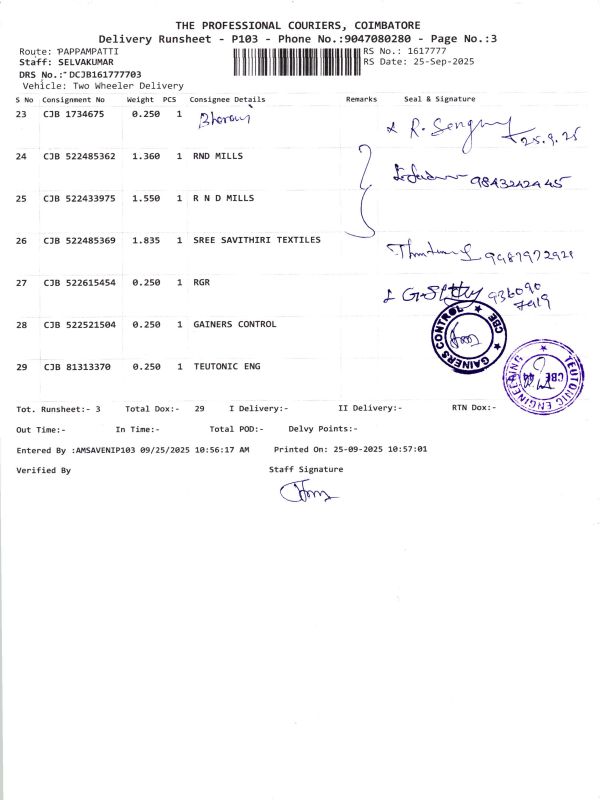 THE PROFESSIONAL COURIERS, COIMBATORE
Delivery Runsheet - P103 - Phone No.:9047080280 - Page No.:3
Route: PAPPAMPATTI RS No.: 1617777
Staff: SELVAKUMAR RS Date: 25-Sep-2025
DRS No.: DCJB161777703
Vehicle: Two Wheeler Delivery
S No Consignment No Weight PCS Consignee Details Remarks Seal & Signature
23 CJB 1734675 0.250 1
25.9.25
24 CJB 522485362 1.360 1 RND MILLS
9843242445
25 CJB 522433975 1.550 1 R N D MILLS
26 CJB 522485369 1.835 1 SREE SAVITHIRI TEXTILES
27 CJB 522615454 0.250 1 RGR
28 CJB 522521504 0.250 1 GAINERS CONTROL
GAINERS CONTROL ★ CBE ★
29 CJB 81313370 0.250 1 TEUTONIC ENG
TEUTONIC ENGINEERING ★ CBE
Tot. Runsheet:- 3 Total Dox:- 29 I Delivery:- II Delivery:- RTN Dox:-
Out Time:- In Time:- Total POD:- Delvy Points:-
Entered By :AMSAVENIP103 09/25/2025 10:56:17 AM Printed On: 25-09-2025 10:57:01
Verified By Staff Signature